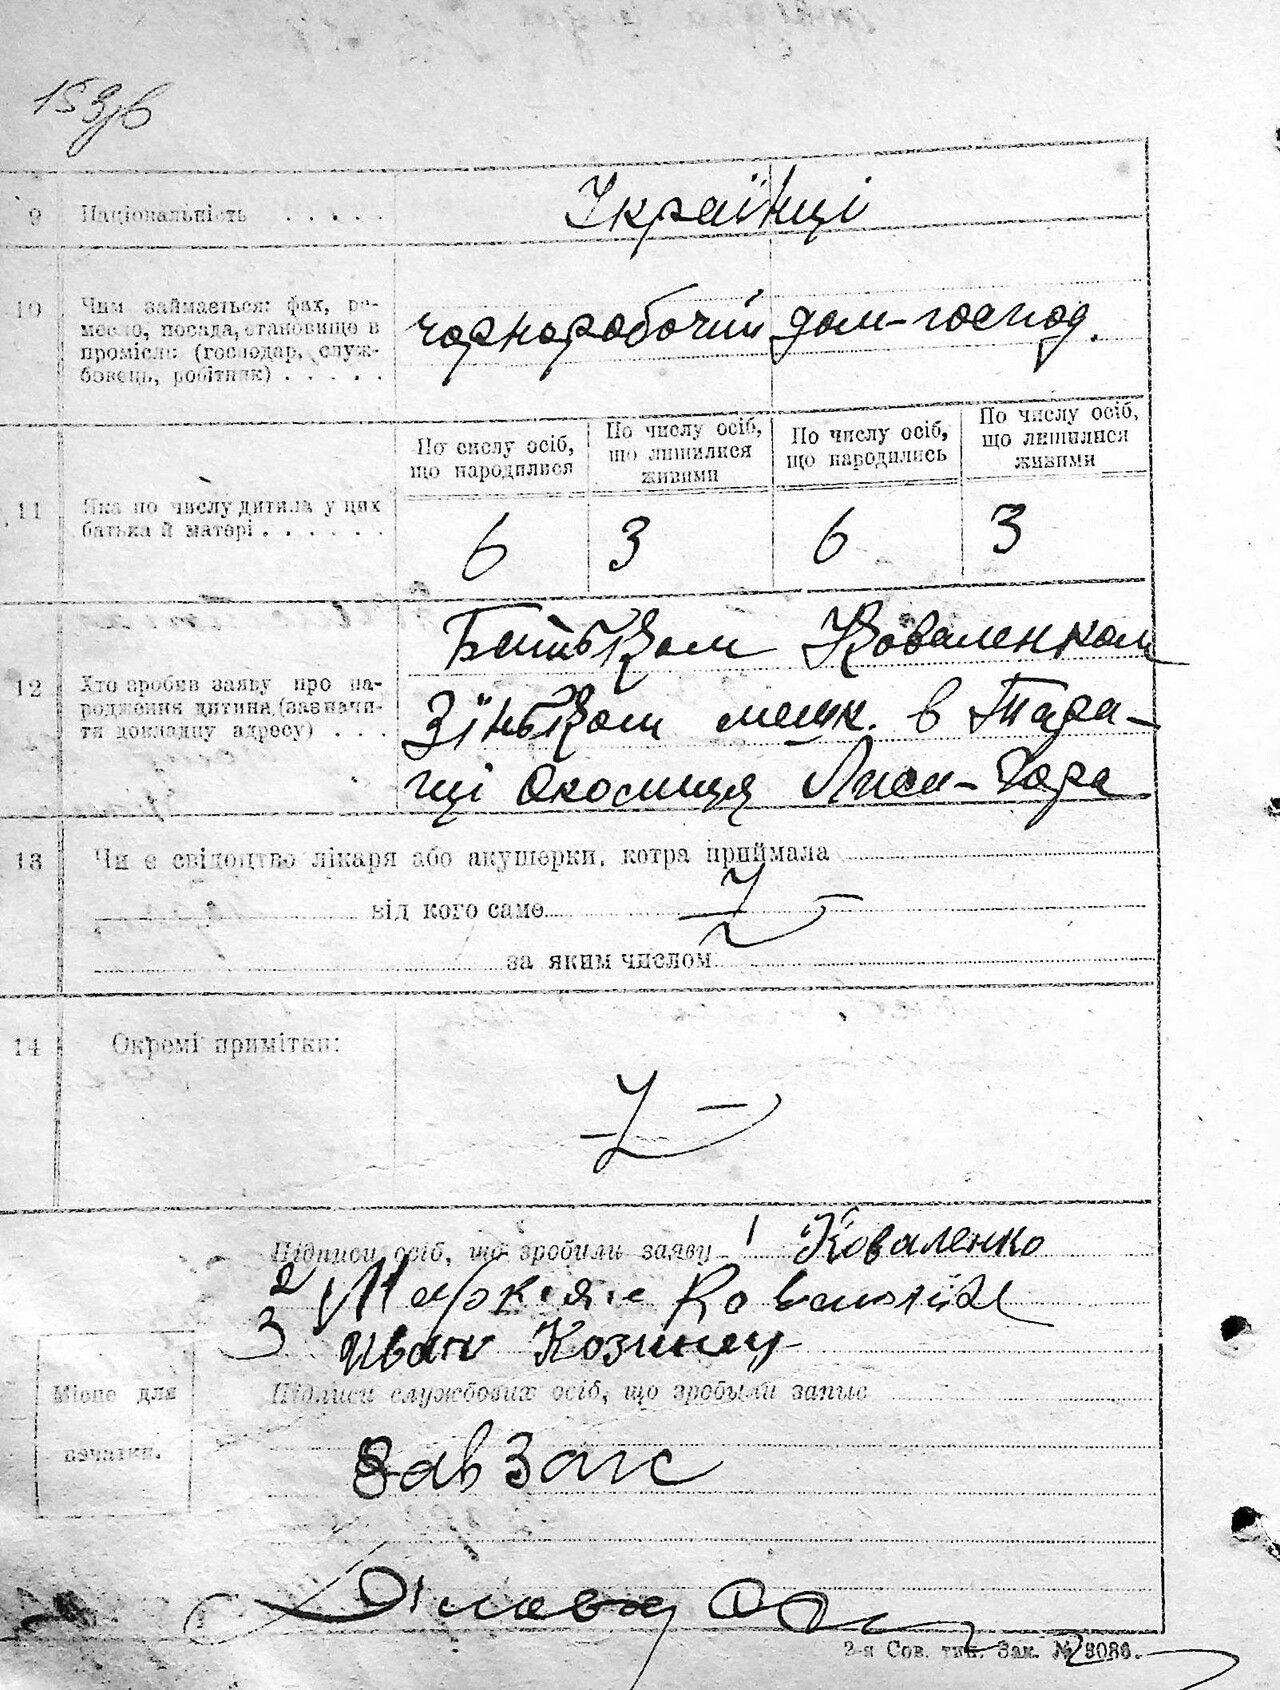 153/6
9 Національність . . . . . Українці
10 Чим займається: фах, ре-
месло, посада, становище в
промісли (господар, служ-
бовець, робітник) . . . . .
чорноробочий дом-господ.
По числу осіб,
що народилися
По числу осіб,
що лишилися
живими
По числу осіб,
що народились
По числу осіб,
що лишилися
живими
11 Яка по числу дитина у цих
батька й матері . . . . . .
6 3 6 3
12 Хто зробив заяву про на-
родження дитини (зазначи-
ти докладну адресу) . . .
Батьком Коваленком
Зіньком мешк. в Тара-
щі околиця Лиса-Гора
13 Чи є свідоцтво лікаря або акушерки, котра приймала
від кого саме
за яким числом
14 Окремі примітки:
Підписи осіб, що зробили заяву 1 Коваленко
2
3 Иван Козинец
Підписи службових осіб, що зробыли запис
Місце для
печатки.
ЗавЗагс
2-я Сов. тип. Зак. № 3086.